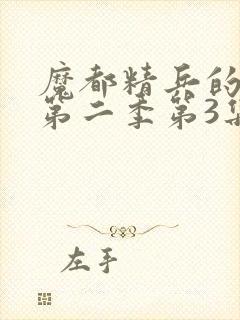 魔都精兵的
第二季第3集
左手